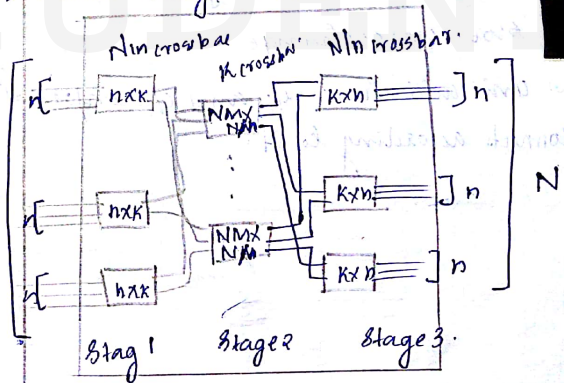 N/n crossbar
K crossbar
N/n crossbar.
n
n×k
NMX
N/n
K×n
n
n
n×k
K×n
n
N
NMX
N/n
n
n×k
K×n
n
Stag 1
Stage 2
Stage 3.